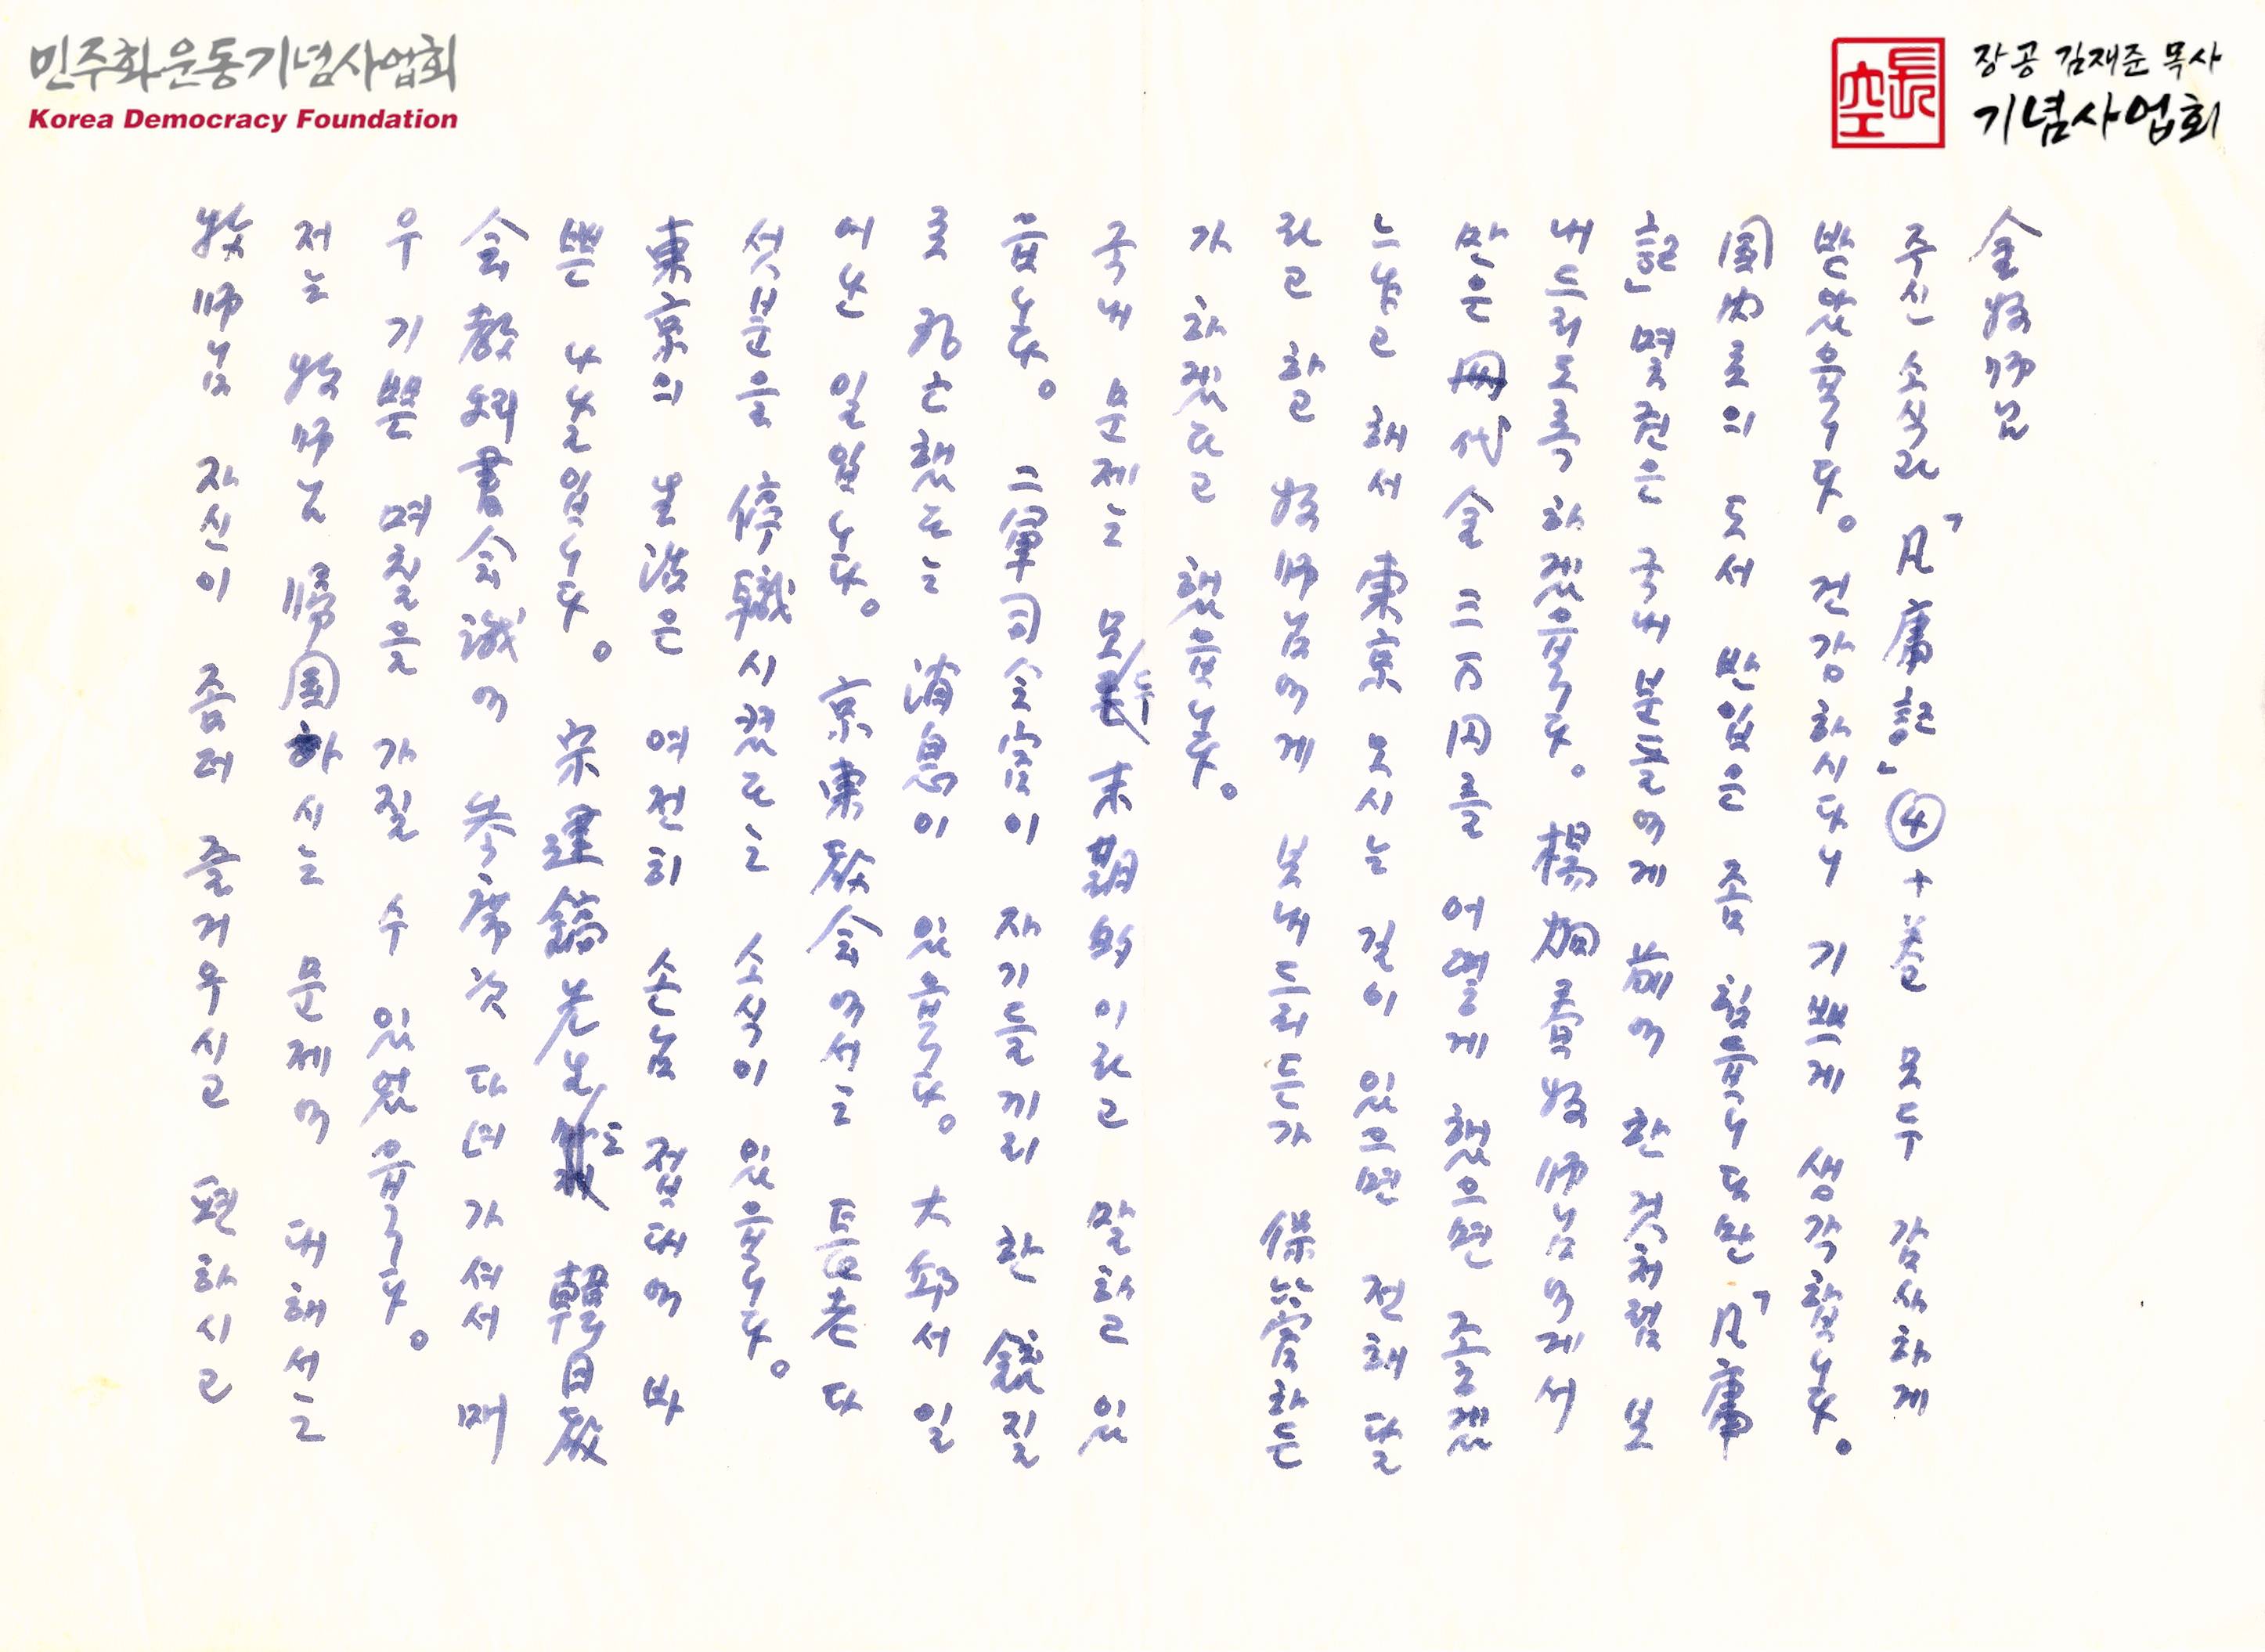 민주화운동기념사업회
Korea Democracy Foundation
長空
장공 김재준 목사
기념사업회
金牧師님
주신 소식과 「凡庸記」④ 十卷 모두 감사하게
받았읍니다。 건강하시다니 기쁘게 생각합니다。
国内로의 도서 반입은 좀 힘듭니다만 「凡庸
記」 몇권은 국내 분들에게 前에 한 것처럼 보
내드리도록 하겠읍니다。 楊炯春牧師님에게서
받은 冊代金 三万円를 어떻게 했으면 조코겠
느냐고 해서 東京 오시는 길이 있으면 전해 달
라고 하고 牧師님에게 보내드리든가 保管하든
가 하겠다고 했읍니다。
국내 문제는 모두 末期的이라고 말하고 있
읍니다。 二軍司令官이 자기들끼리 한 銃질
로 死亡했다는 消息이 있읍니다。 大邱서 일
어난 일입니다。 京東敎会에서도 長老 다
섯분을 停職시켰다는 소식이 있읍니다。
東京의 生活은 여전히 손님 접대에 바
쁜 나날입니다。 宋建鎬先生도 韓日敎
会敎科書会議에 參席次 다녀가셔서 매
우 기쁜 며칠을 가질 수 있었읍니다。
저는 牧師님 歸国하시는 문제에 대해서는
牧師님 자신이 좀더 즐거우시고 편하시고